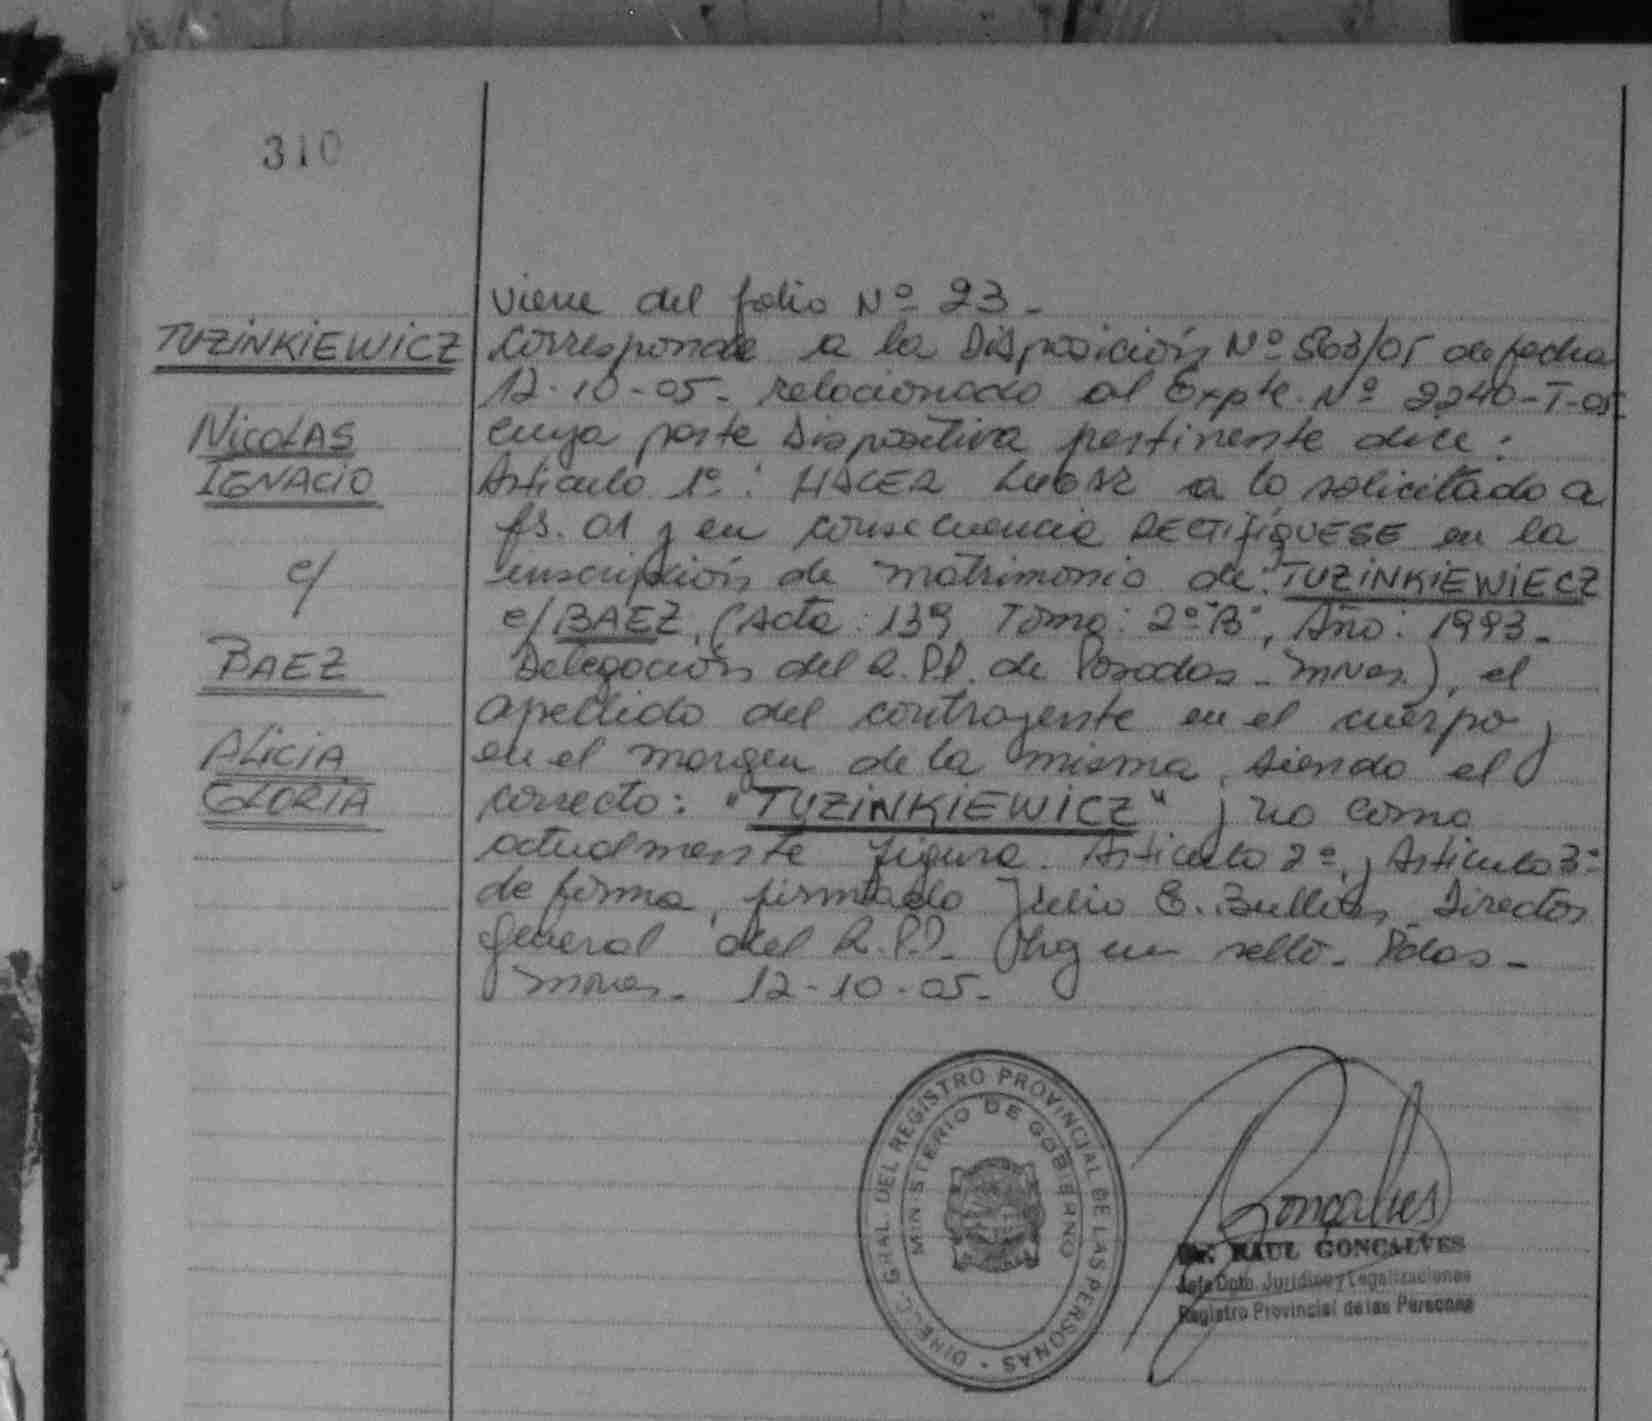 310
TUZINKIEWICZ
NICOLAS
IGNACIO
c/
BAEZ
ALICIA
GLORIA
viene del folio Nº 23-
Corresponde a la Disposición Nº 563/05 de fecha
12-10-05- relacionado al Expte. Nº 2240-T-05
cuya parte Dispositiva pertinente dice:
Artículo 1º: HACER LUGAR a lo solicitado a
fs. 01 y en consecuencia RECTIFÍQUESE en la
inscripción de matrimonio de: TUZINKIEWIECZ
c/ BAEZ, (Acta: 139, Tomo: 2º "B", Año: 1993-
Delegación del R.P.P. de Posadas - Mnes.), el
apellido del contrayente en el cuerpo y
en el margen de la misma, siendo el
correcto: "TUZINKIEWICZ" y no como
actualmente figura. Artículo 2º, y Artículo 3º
de forma, firmado Julio E. Director
General del R.P.P. Hay un sello. Pdas-
Mnes. 12-10-05-
DIREC. GRAL. DEL REGISTRO PROVINCIAL DE LAS PERSONAS
MINISTERIO DE GOBIERNO
Gonçalves
Dr. RAUL GONCALVES
Jefe Dpto. Jurídico y Legalizaciones
Registro Provincial de las Personas